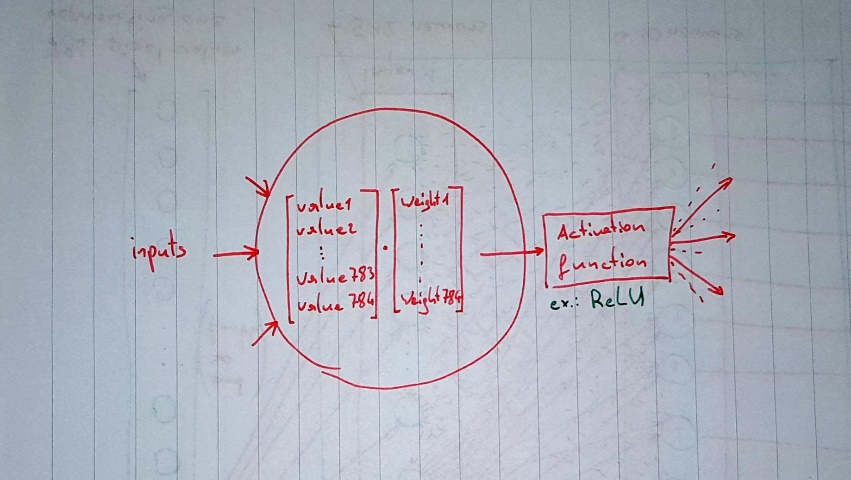 inputs
value1
value2
value783
value784
.
weight1
weight784
Activation
function
ex.: ReLU